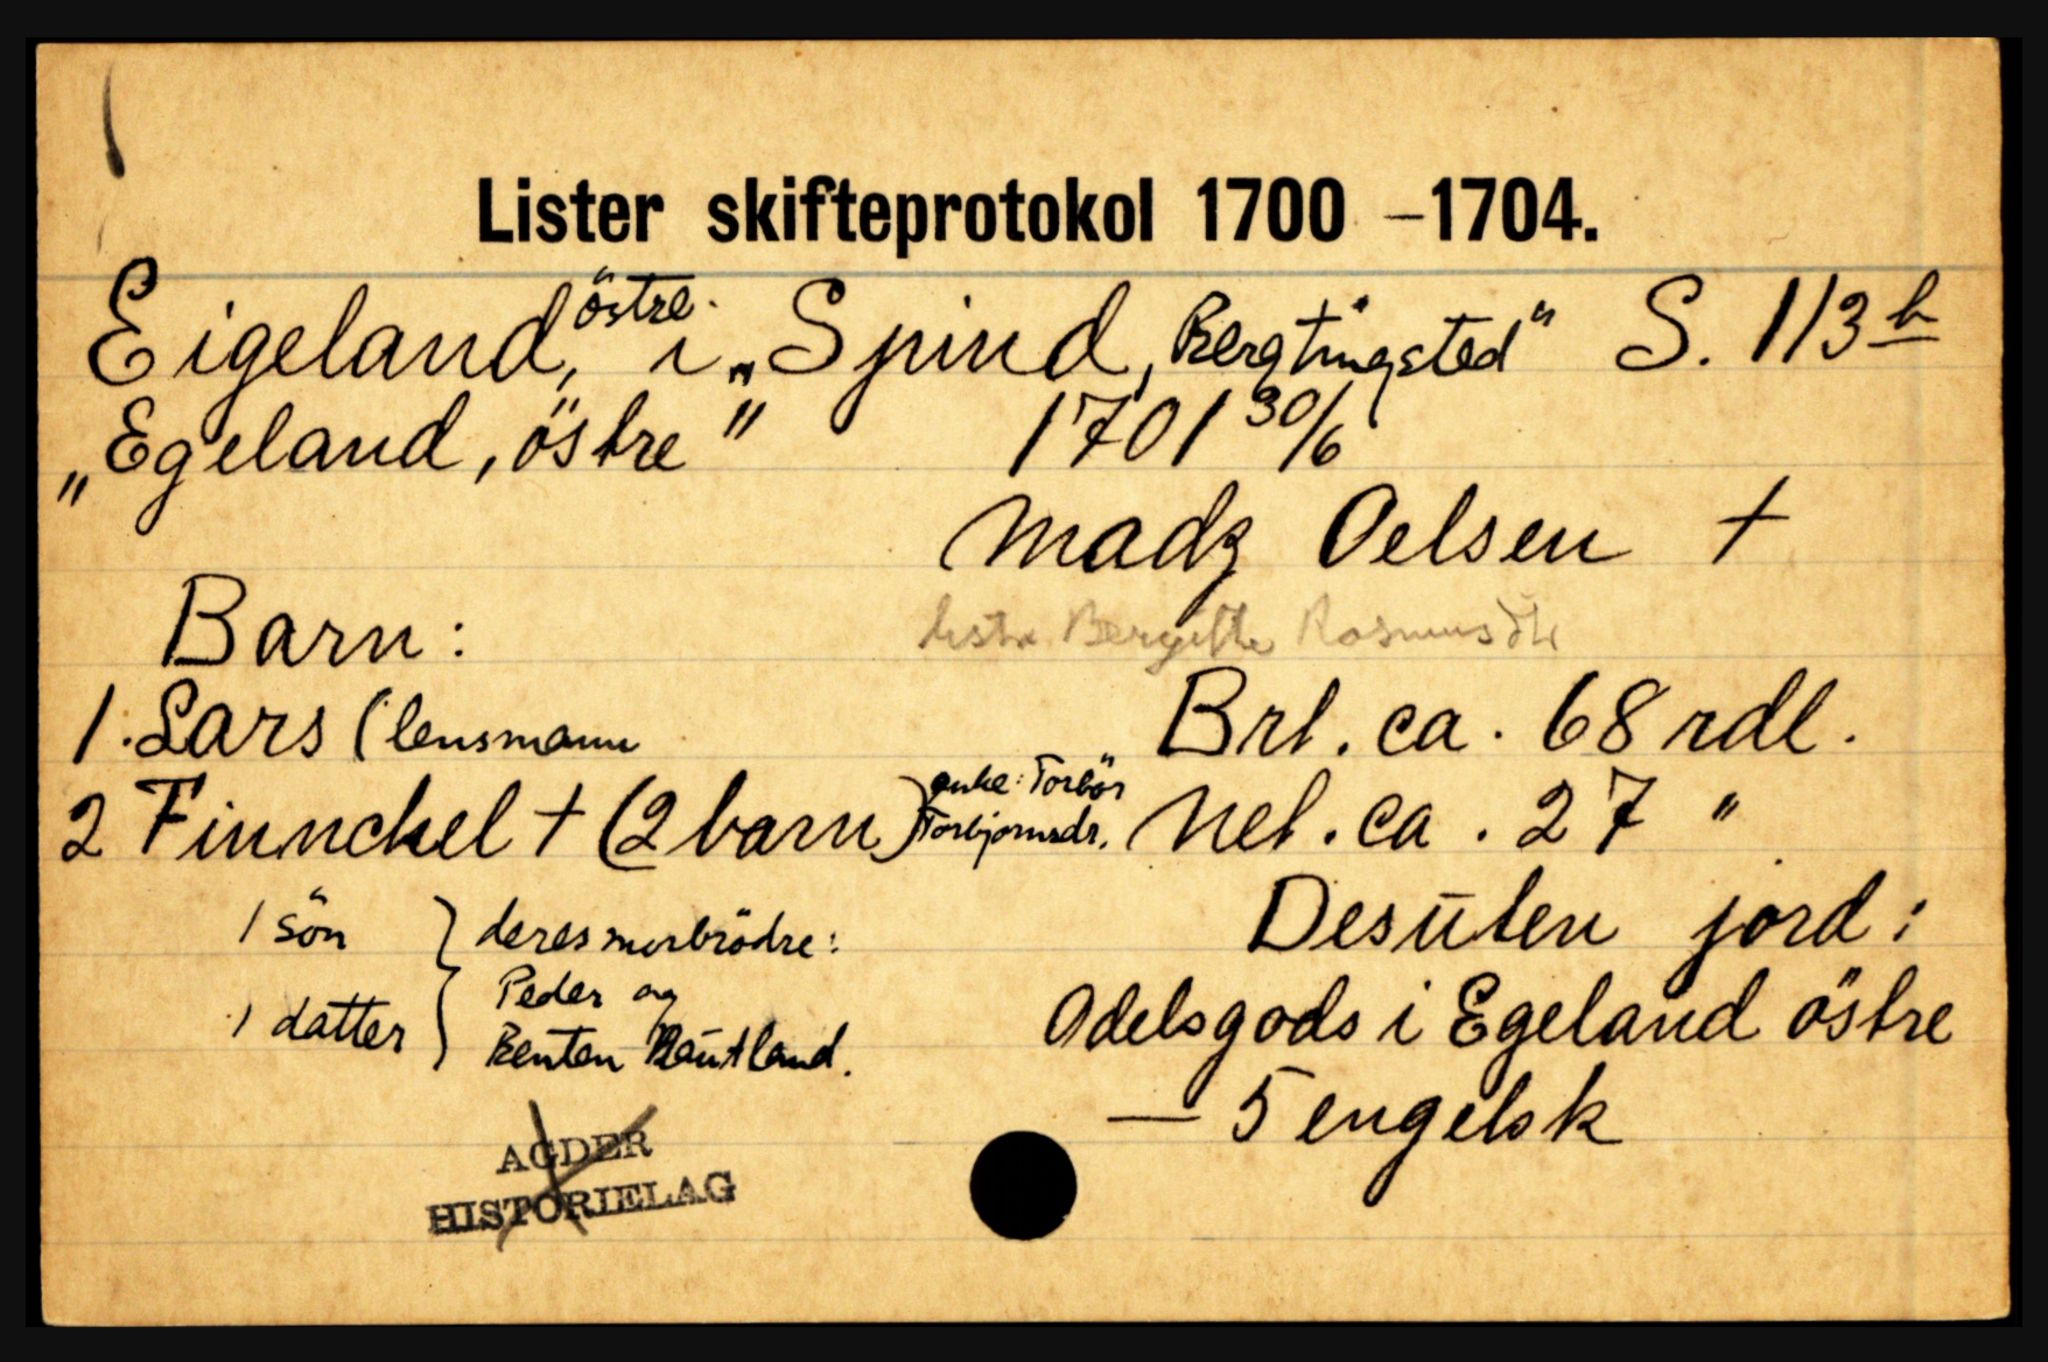 Lister skifteprotokol 1700 – 1704.
Eigeland, östre. i „Spind, Bergtingsted" S. 113 b
„Egeland, östre" 1701 30/6
Madz Oelsen +
Barn:
Bergitte Rasmusdtr
1. Lars (lensmann Brt. ca. 68 rdl.
2 Finnckel + (2 barn) enke: Torbör Torbjornsdr. Net. ca. 27 "
1 sön } deres morbrödre:
Desuten jord:
1 datter } Peder og
Benten Rautland.
Odelsgods i Egeland östre
— 5 engelsk
AGDER
HISTORIELAG